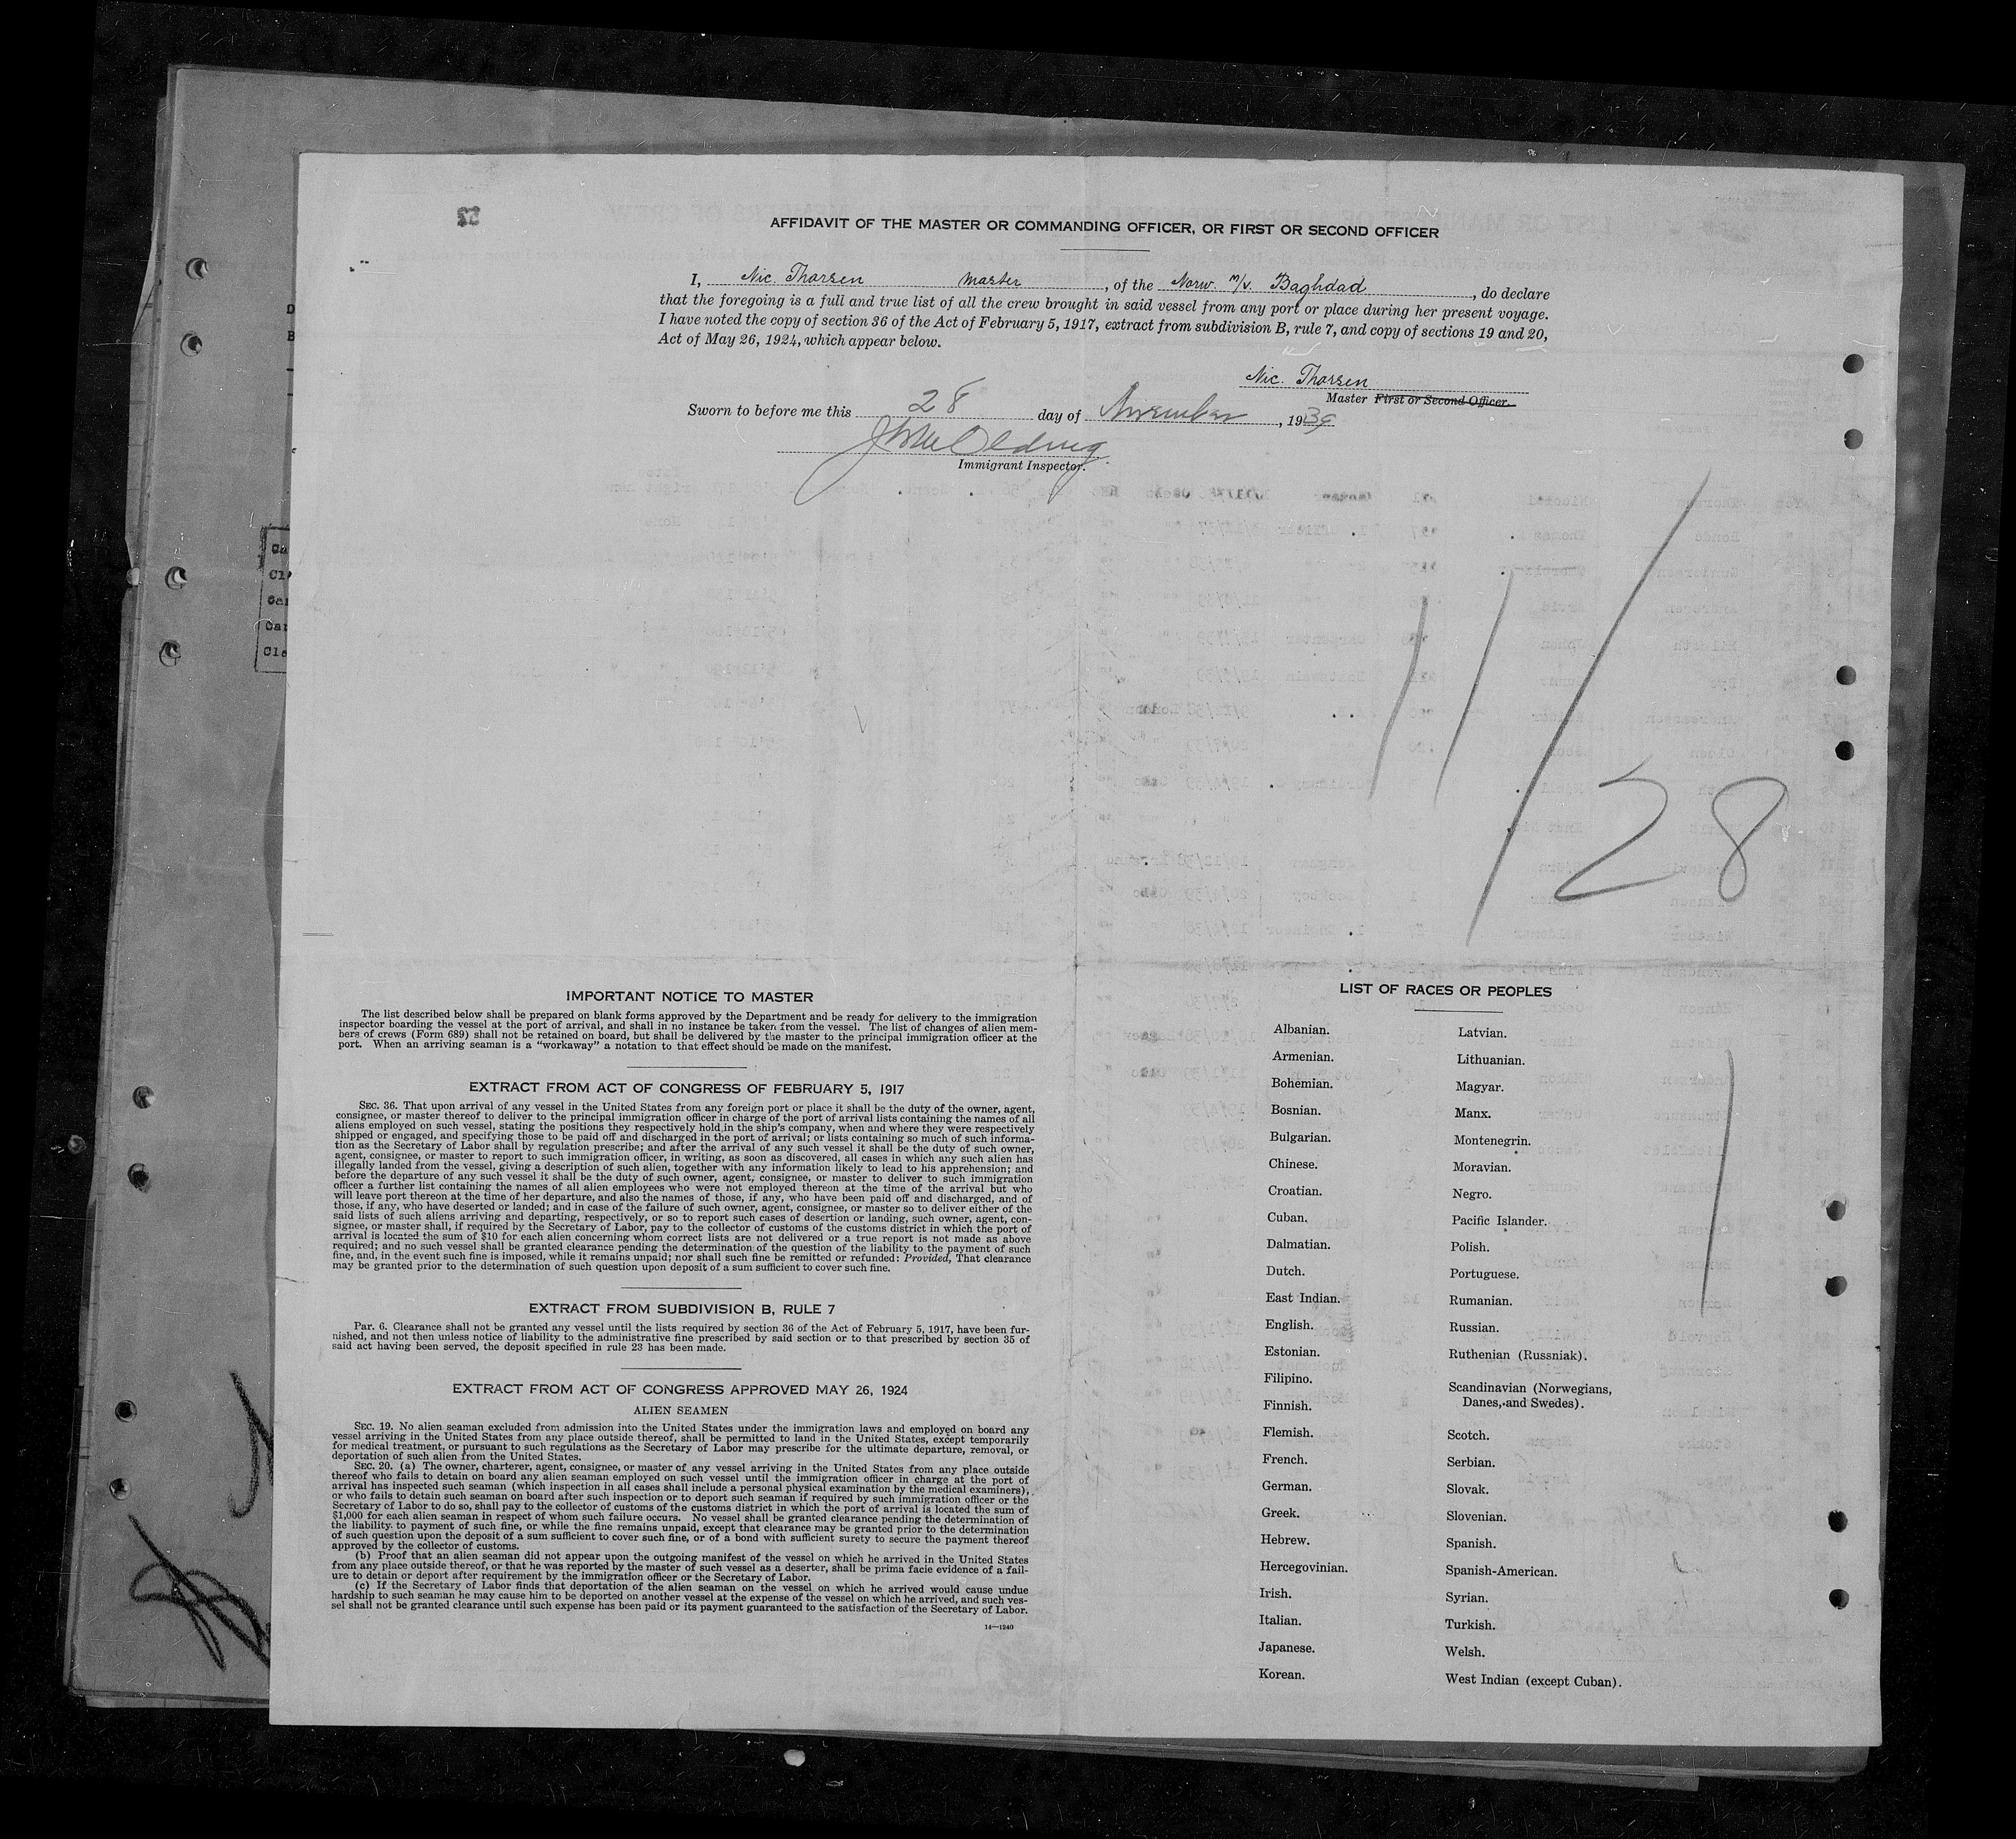 AFFIDAVIT OF THE MASTER OR COMMANDING OFFICER, OR FIRST OR SECOND OFFICER
I, Nic. Thorsen master, of the Norw. M/V. Baghdad, do declare
that the foregoing is a full and true list of all the crew brought in said vessel from any port or place during her present voyage.
I have noted the copy of section 36 of the Act of February 5, 1917, extract from subdivision B, rule 7, and copy of sections 19 and 20,
Act of May 26, 1924, which appear below.
Nic. Thorsen
Master First or Second Officer.
Sworn to before me this 28 day of November, 1939
Immigrant Inspector.
11/28
IMPORTANT NOTICE TO MASTER
The list described below shall be prepared on blank forms approved by the Department and be ready for delivery to the immigration
inspector boarding the vessel at the port of arrival, and shall in no instance be taken from the vessel. The list of changes of alien mem-
bers of crews (Form 689) shall not be retained on board, but shall be delivered by the master to the principal immigration officer at the
port. When an arriving seaman is a "workaway" a notation to that effect should be made on the manifest.
EXTRACT FROM ACT OF CONGRESS OF FEBRUARY 5, 1917
SEC. 36. That upon arrival of any vessel in the United States from any foreign port or place it shall be the duty of the owner, agent,
consignee, or master thereof to deliver to the principal immigration officer in charge of the port of arrival lists containing the names of all
aliens employed on such vessel, stating the positions they respectively hold in the ship's company, when and where they were respectively
shipped or engaged, and specifying those to be paid off and discharged in the port of arrival; or lists containing so much of such informa-
tion as the Secretary of Labor shall by regulation prescribe; and after the arrival of any such vessel it shall be the duty of such owner,
agent, consignee, or master to report to such immigration officer, in writing, as soon as discovered, all cases in which any such alien has
illegally landed from the vessel, giving a description of such alien, together with any information likely to lead to his apprehension; and
before the departure of any such vessel it shall be the duty of such owner, agent, consignee, or master to deliver to such immigration
officer a further list containing the names of all alien employees who were not employed thereon at the time of the arrival but who
will leave port thereon at the time of her departure, and also the names of those, if any, who have been paid off and discharged, and of
those, if any, who have deserted or landed; and in case of the failure of such owner, agent, consignee, or master so to deliver either of the
said lists of such aliens arriving and departing, respectively, or so to report such cases of desertion or landing, such owner, agent, con-
signee, or master shall, if required by the Secretary of Labor, pay to the collector of customs of the customs district in which the port of
arrival is located the sum of $10 for each alien concerning whom correct lists are not delivered or a true report is not made as above
required; and no such vessel shall be granted clearance pending the determination of the question of the liability to the payment of such
fine, and, in the event such fine is imposed, while it remains unpaid; nor shall such fine be remitted or refunded: Provided, That clearance
may be granted prior to the determination of such question upon deposit of a sum sufficient to cover such fine.
EXTRACT FROM SUBDIVISION B, RULE 7
Par. 6. Clearance shall not be granted any vessel until the lists required by section 36 of the Act of February 5, 1917, have been fur-
nished, and not then unless notice of liability to the administrative fine prescribed by said section or to that prescribed by section 35 of
said act having been served, the deposit specified in rule 23 has been made.
EXTRACT FROM ACT OF CONGRESS APPROVED MAY 26, 1924
ALIEN SEAMEN
SEC. 19. No alien seaman excluded from admission into the United States under the immigration laws and employed on board any
vessel arriving in the United States from any place outside thereof, shall be permitted to land in the United States, except temporarily
for medical treatment, or pursuant to such regulations as the Secretary of Labor may prescribe for the ultimate departure, removal, or
deportation of such alien from the United States.
SEC. 20. (a) The owner, charterer, agent, consignee, or master of any vessel arriving in the United States from any place outside
thereof who fails to detain on board any alien seaman employed on such vessel until the immigration officer in charge at the port of
arrival has inspected such seaman (which inspection in all cases shall include a personal physical examination by the medical examiners),
or who fails to detain such seaman on board after such inspection or to deport such seaman if required by such immigration officer or the
Secretary of Labor to do so, shall pay to the collector of customs of the customs district in which the port of arrival is located the sum of
$1,000 for each alien seaman in respect of whom such failure occurs. No vessel shall be granted clearance pending the determination of
the liability to payment of such fine, or while the fine remains unpaid, except that clearance may be granted prior to the determination
of such question upon the deposit of a sum sufficient to cover such fine, or of a bond with sufficient surety to secure the payment thereof
approved by the collector of customs.
(b) Proof that an alien seaman did not appear upon the outgoing manifest of the vessel on which he arrived in the United States
from any place outside thereof, or that he was reported by the master of such vessel as a deserter, shall be prima facie evidence of a fail-
ure to detain or deport after requirement by the immigration officer or the Secretary of Labor.
(c) If the Secretary of Labor finds that deportation of the alien seaman on the vessel on which he arrived would cause undue
hardship to such seaman he may cause him to be deported on another vessel at the expense of the vessel on which he arrived, and such ves-
sel shall not be granted clearance until such expense has been paid or its payment guaranteed to the satisfaction of the Secretary of Labor.
14—1240
LIST OF RACES OR PEOPLES
Albanian.
Armenian.
Bohemian.
Bosnian.
Bulgarian.
Chinese.
Croatian.
Cuban.
Dalmatian.
Dutch.
East Indian.
English.
Estonian.
Filipino.
Finnish.
Flemish.
French.
German.
Greek.
Hebrew.
Hercegovinian.
Irish.
Italian.
Japanese.
Korean.
Latvian.
Lithuanian.
Magyar.
Manx.
Montenegrin.
Moravian.
Negro.
Pacific Islander.
Polish.
Portuguese.
Rumanian.
Russian.
Ruthenian (Russniak).
Scandinavian (Norwegians,
Danes, and Swedes).
Scotch.
Serbian.
Slovak.
Slovenian.
Spanish.
Spanish-American.
Syrian.
Turkish.
Welsh.
West Indian (except Cuban).